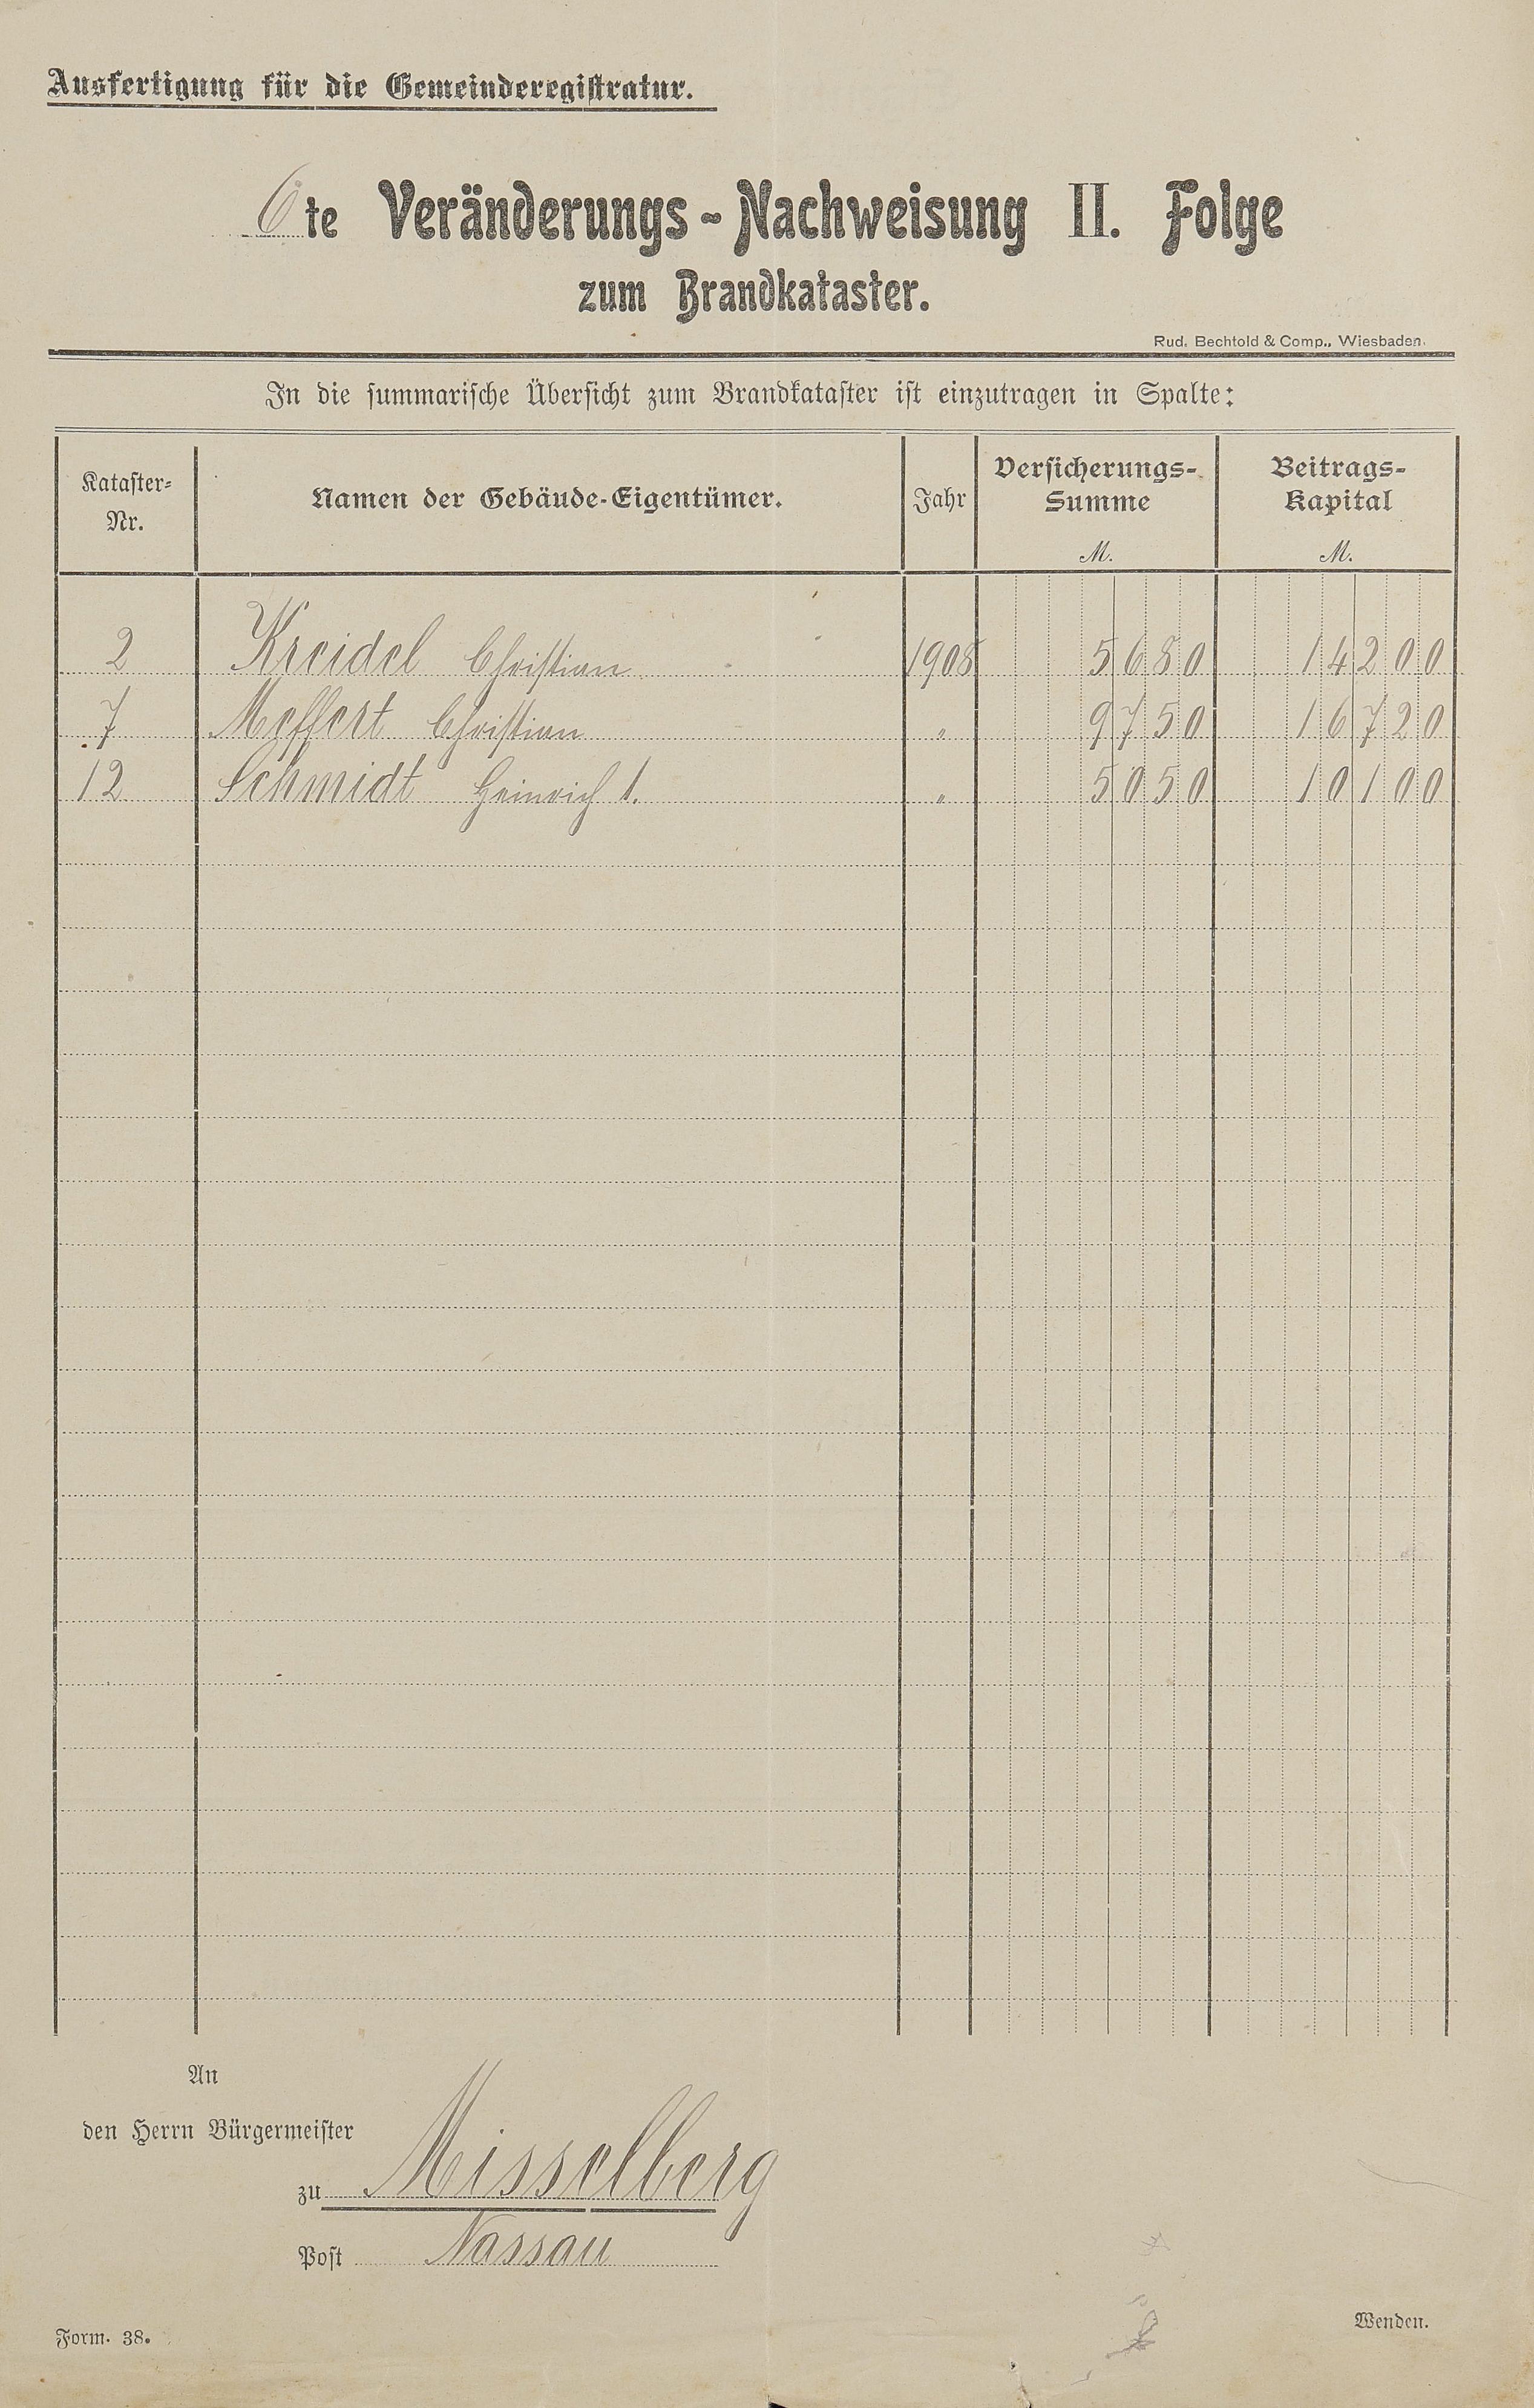 Ausfertigung für die Gemeinderegistratur.
6te Veränderungs-Nachweisung II. Folge
zum Brandkataster.
Rud. Bechtold & Comp., Wiesbaden.
In die summarische Übersicht zum Brandkataster ist einzutragen in Spalte:
Kataster-Nr. Namen der Gebäude-Eigentümer. Jahr Versicherungs-Summe M. Beitrags-Kapital M.
2 Kreidel Christian 1908 5680 14200
7 Meffert Christian " 9750 16720
12 Schmidt Heinrich 1. " 5050 10100
An
den Herrn Bürgermeister
zu Misselberg
Post Nassau
Form. 38.
Wenden.